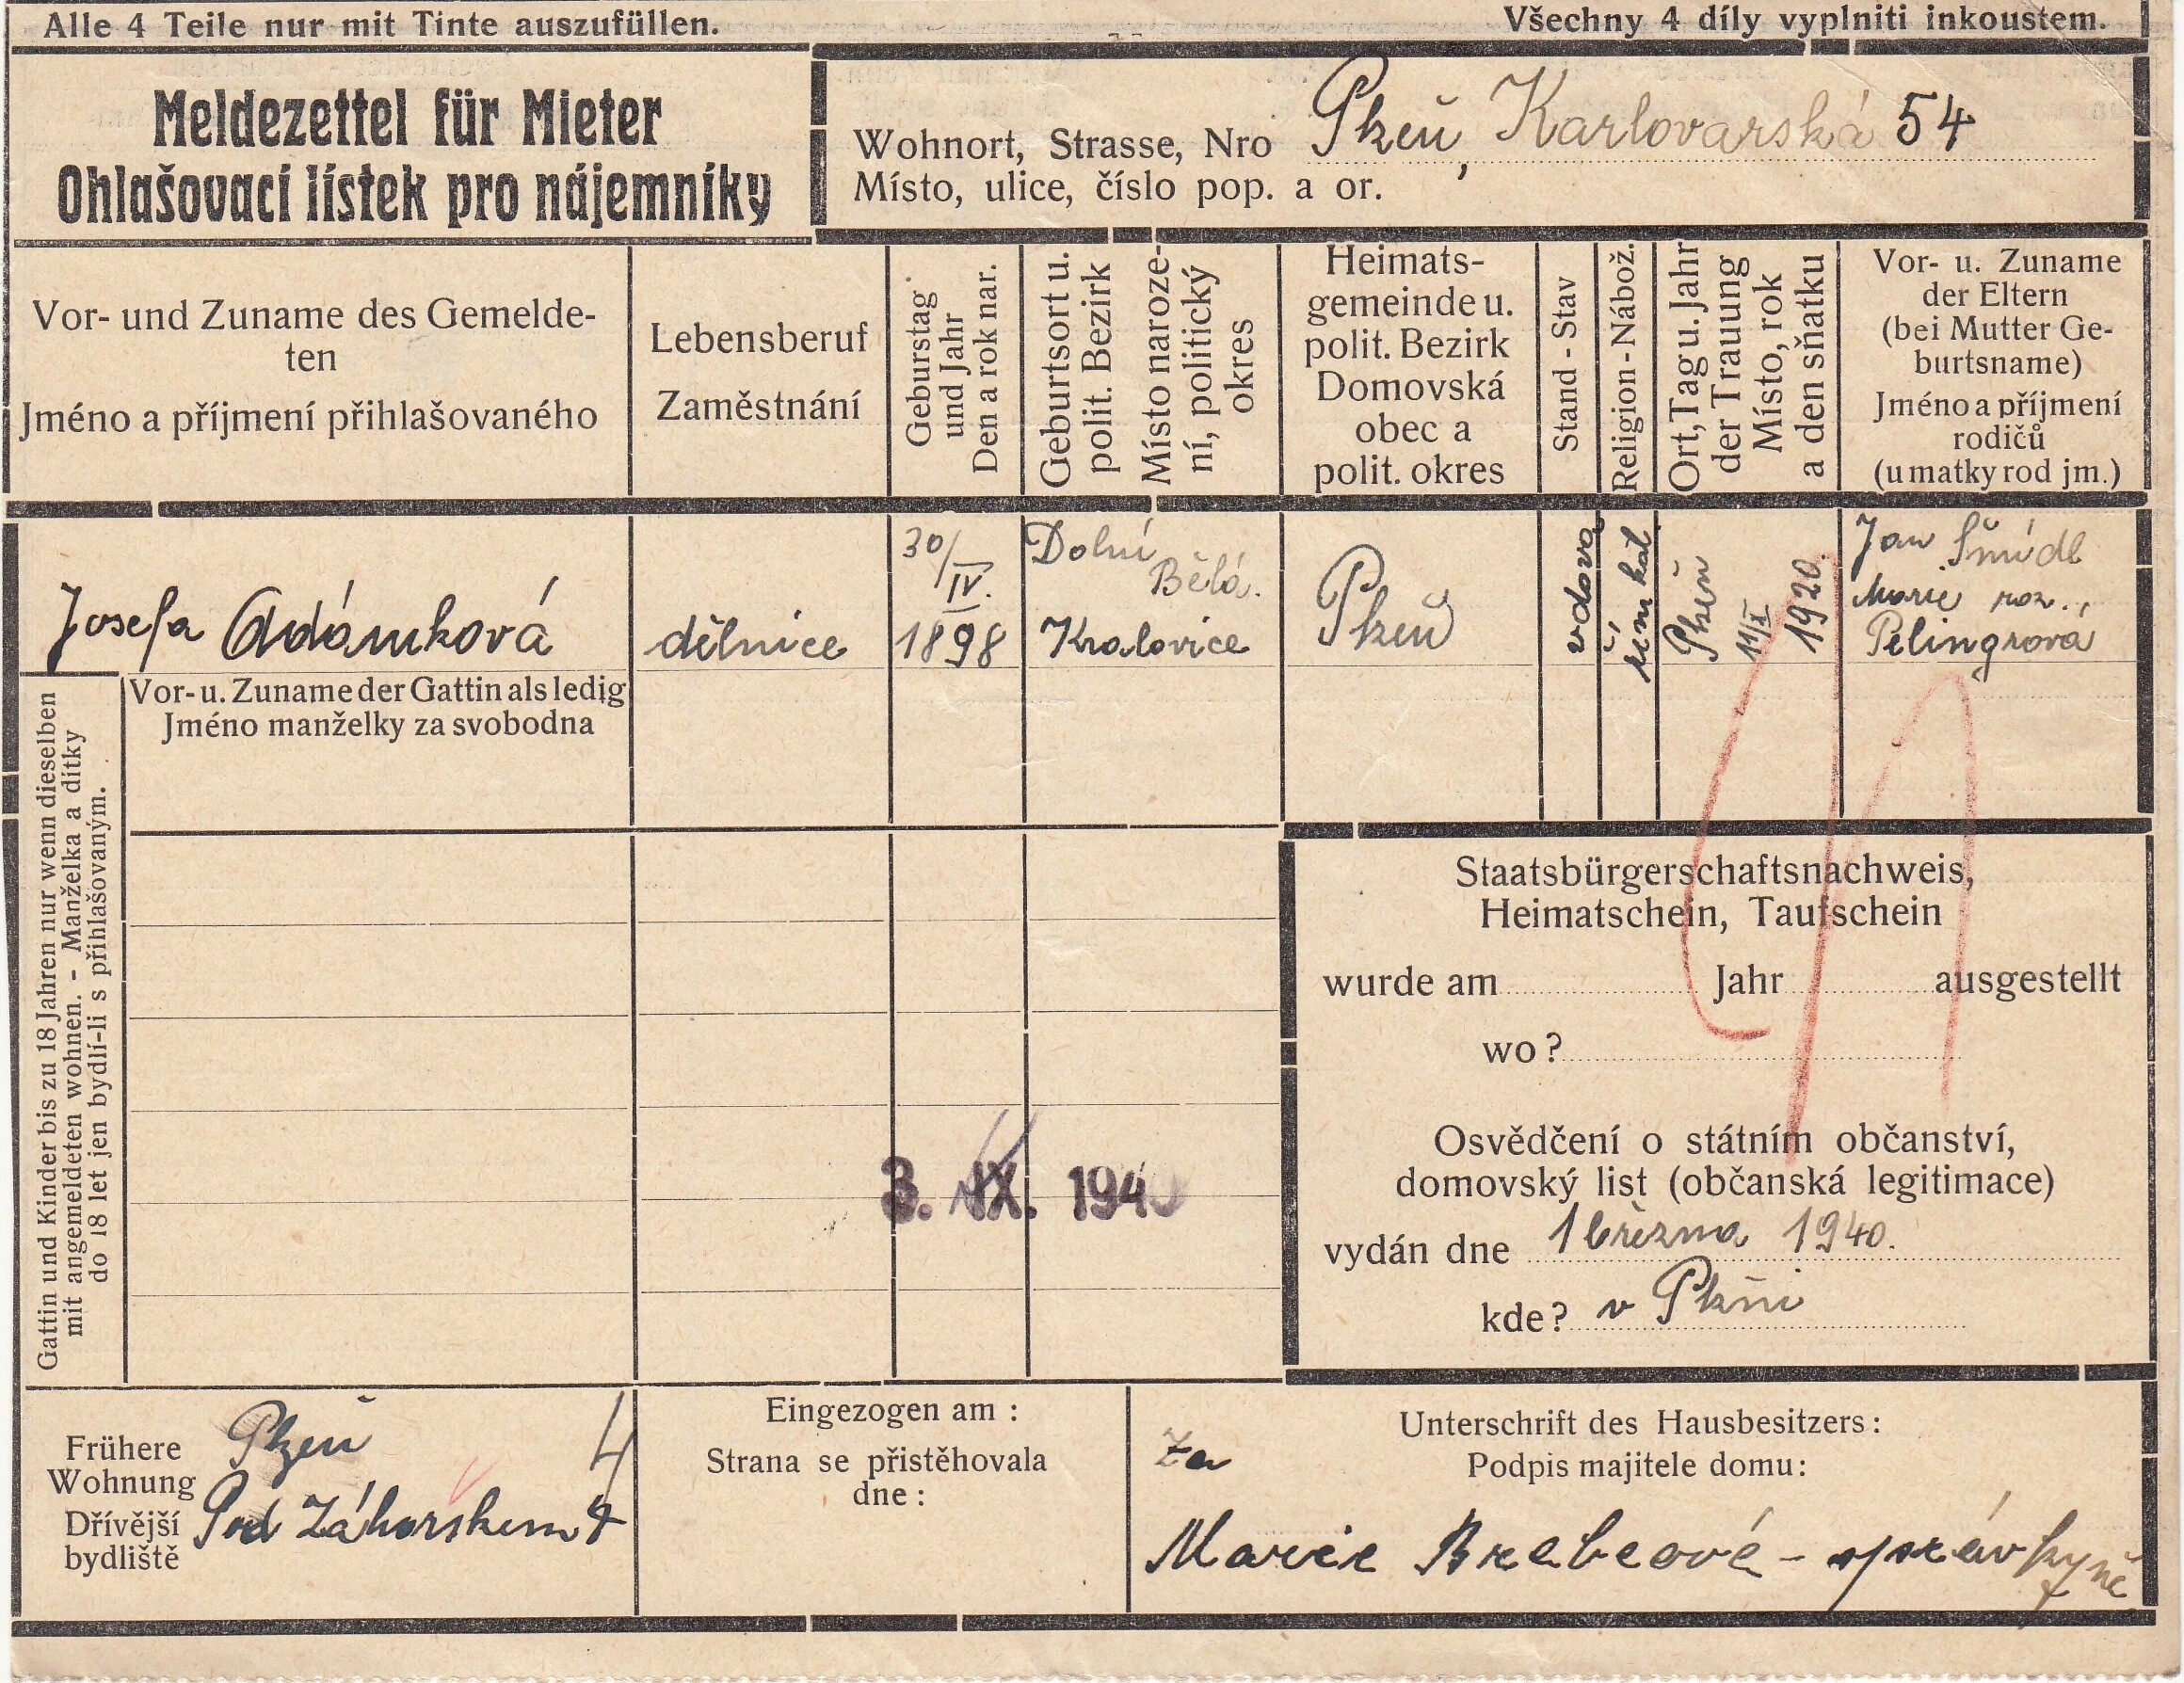 Alle 4 Teile nur mit Tinte auszufüllen.
Všechny 4 díly vyplniti inkoustem.
Meldezettel für Mieter
Ohlašovací lístek pro nájemníky
Wohnort, Strasse, Nro Plzeň, Karlovarská 54
Místo, ulice, číslo pop. a or.
Vor- und Zuname des Gemelde-
ten
Jméno a příjmení přihlašovaného
Lebensberuf
Zaměstnání
Geburstag
und Jahr
Den a rok nar.
Geburtsort u.
polit. Bezirk
Místo naroze-
ní, politický
okres
Heimats-
gemeinde u.
polit. Bezirk
Domovská
obec a
polit. okres
Stand - Stav
Religion - Nábož.
Ort, Tag u. Jahr
der Trauung
Místo, rok
a den sňatku
Vor- u. Zuname
der Eltern
(bei Mutter Ge-
burtsname)
Jméno a příjmení
rodičů
(u matky rod jm.)
Josefa Adámková
dělnice
30/IV.
1898
Dolní
Bělá.
Kralovice
Plzeň
vdova
řím kat
Plzeň
11/X
1920.
Jan Šmídl
Marie roz.,
Pelingrová
Vor- u. Zuname der Gattin als ledig
Jméno manželky za svobodna
Gattin und Kinder bis zu 18 Jahren nur wenn dieselben
mit angemeldeten wohnen. - Manželka a dítky
do 18 let jen bydlí-li s přihlašovaným.
3. IX. 1940
Staatsbürgerschaftsnachweis,
Heimatschein, Taufschein
wurde am Jahr ausgestellt
wo?
Osvědčení o státním občanství,
domovský list (občanská legitimace)
vydán dne 1 března 1940.
kde? v Plzni
Frühere
Wohnung
Dřívější
bydliště
Plzeň
Pod Záhorskem 4
4
Eingezogen am :
Strana se přistěhovala
dne :
Unterschrift des Hausbesitzers :
Podpis majitele domu :
Za
Marie Brabcová - správkyně